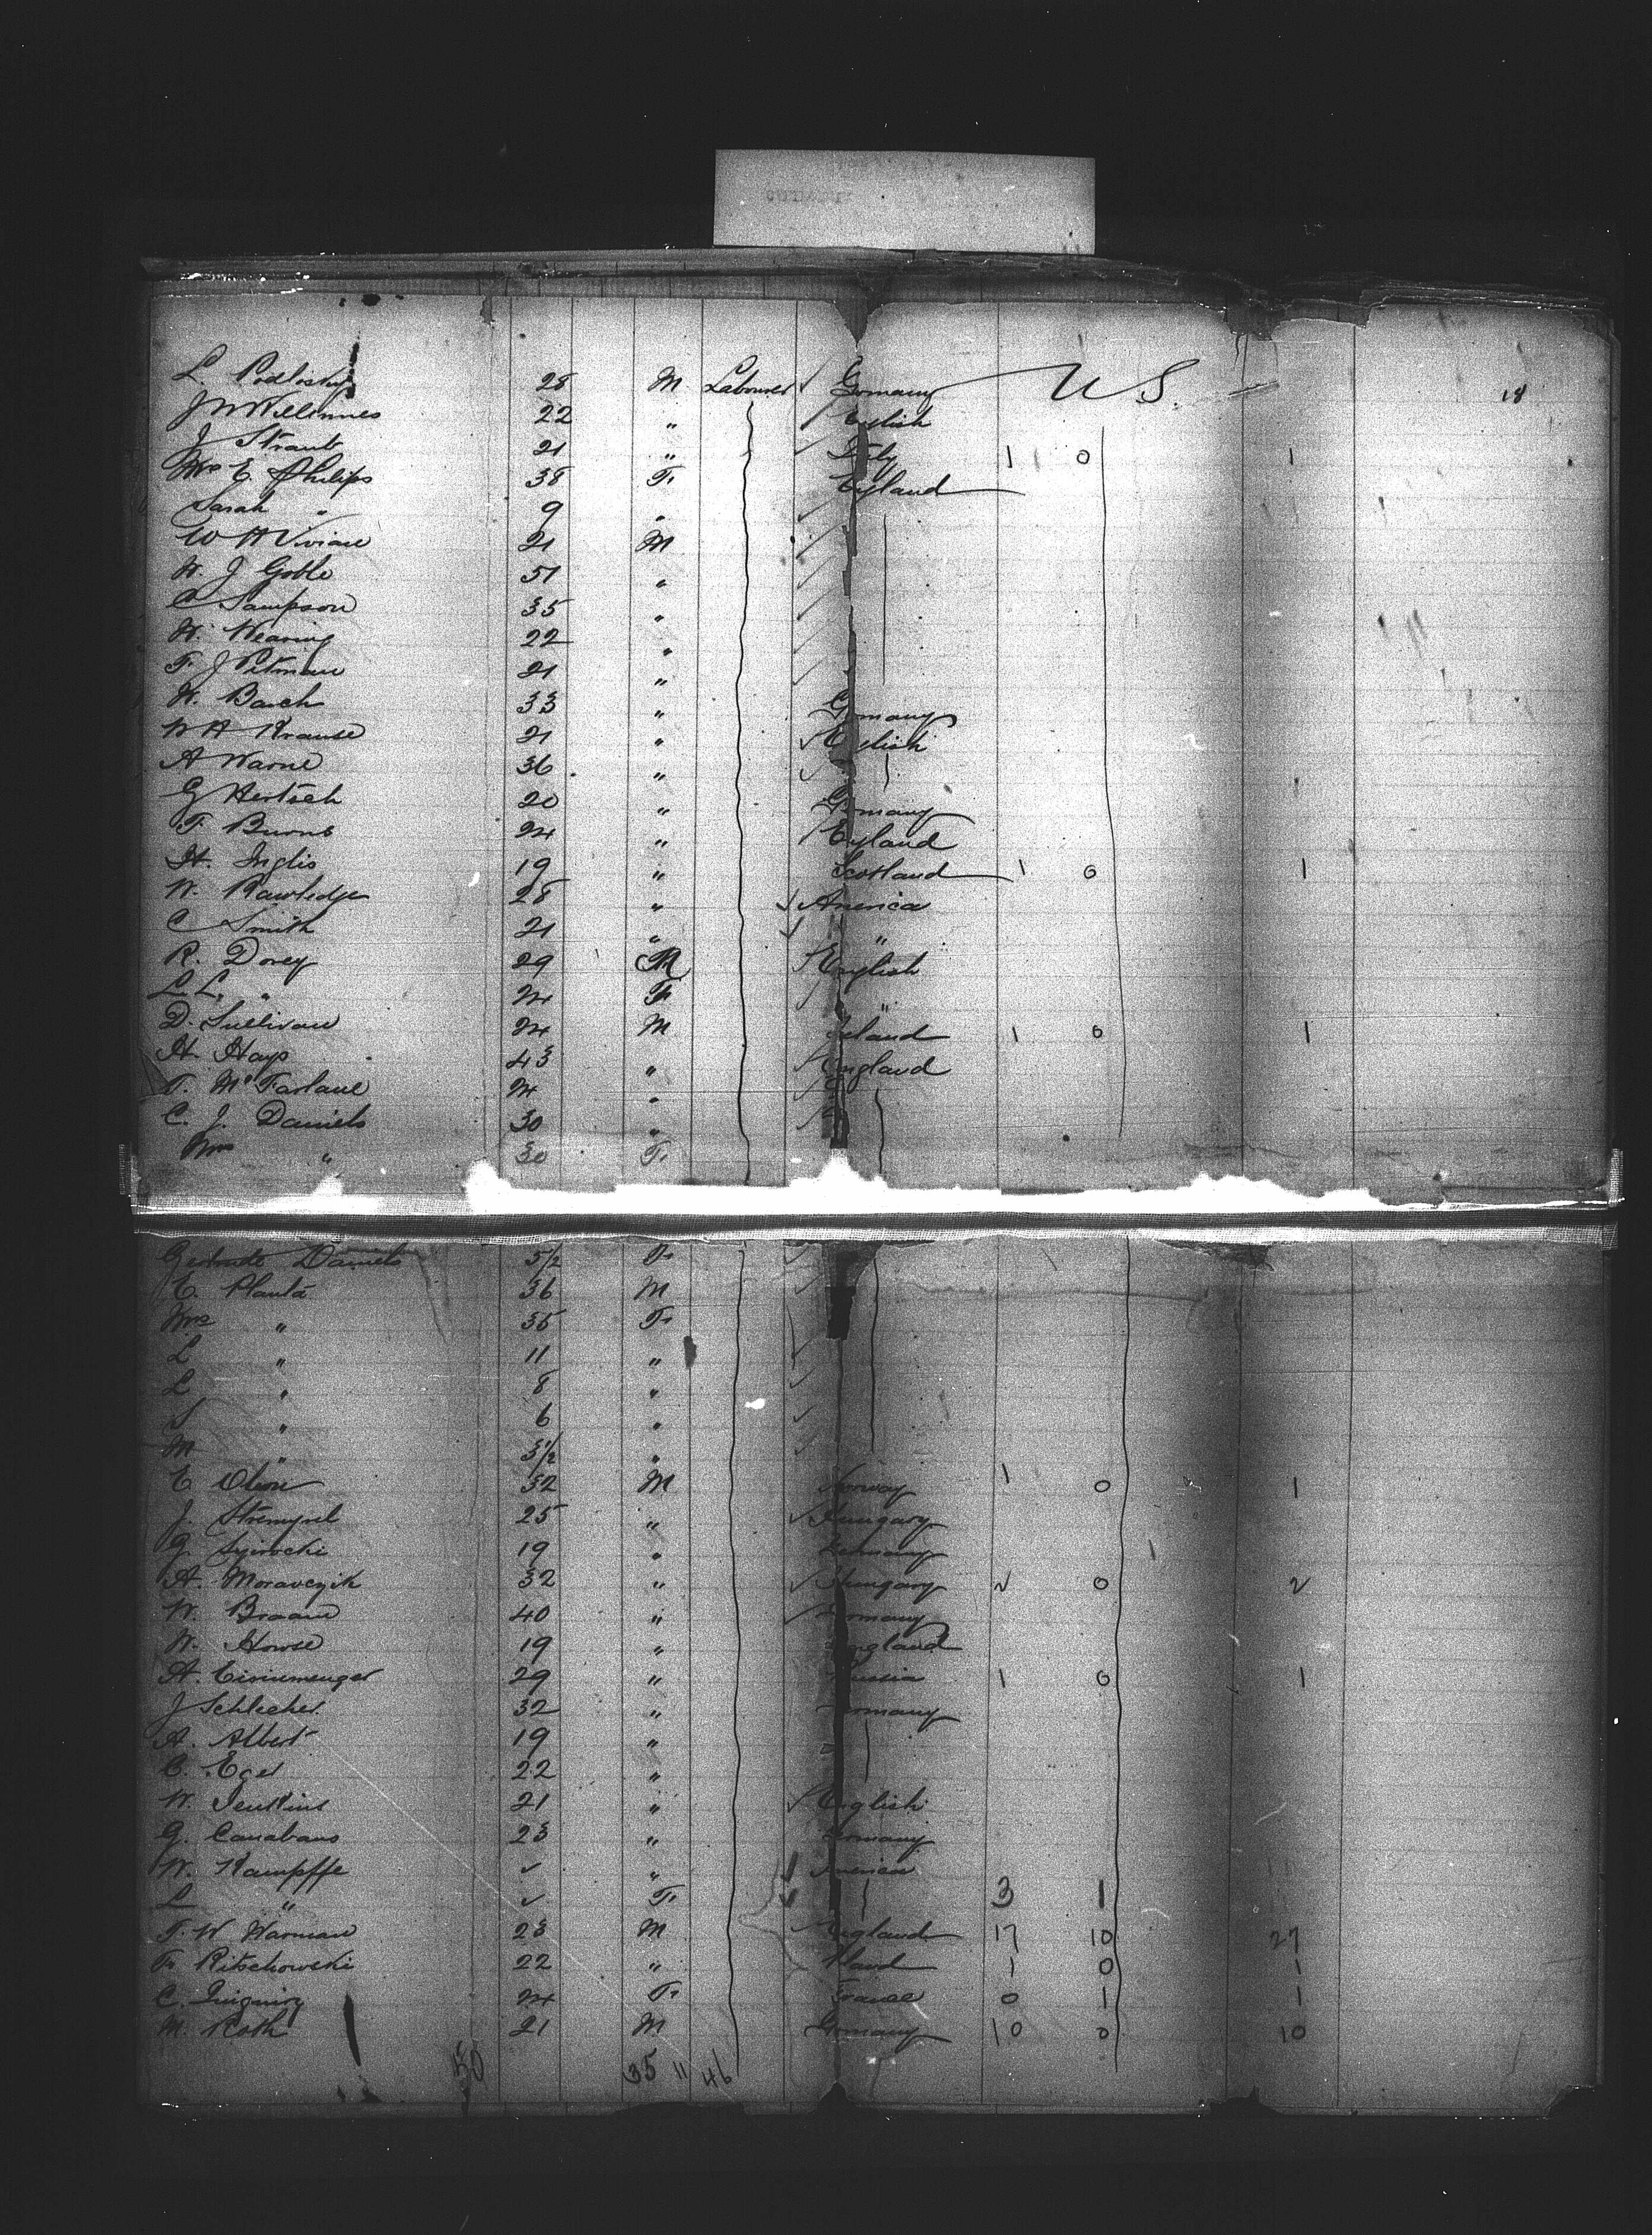 L. Podlosky 28 M Labourer Germany U S. 18
J W Willimes 22 " English
J Straub 21 " Italy 1 0 1
Mrs E Philips 38 F England
Sarah " 9 "
W H Vivian 21 M
W. J Goble 51 "
C Sampson 35 "
W. Wearing 22 "
F. J Pitman 21 "
W. Bauch 33 " Germany
W H Krause 21 " English
A Warne 36 "
G Hertsch 20 " Germany
F. Burns 24 " England
H. Inglis 19 " Scotland 1 0 1
W. Rawledge 28 " America
C Smith 21 " "
R. Dorey 29 M English
L L. " 24 F "
D. Sullivan 24 M Ireland 1 0 1
H. Hays 43 " England
T. McFarlane 24 "
C. J. Daniels 30 "
Mrs " 30 F
Gertrude Daniels 5/12 F
E. Planta 36 M
Mrs " 35 F
L " 11 "
L " 8 "
S " 6 "
M " 3 1/2 "
E Olson 32 M Norway 1 0 1
J. 25 " Hungary
G. 19 " Germany
A. Moravczik 32 " Hungary 2 0 2
W. Braam 40 " Germany
W. Howse 19 " England
A. Eisinmenger 29 " Russia 1 0 1
J Schlecher 32 " Germany
A. Albert 19 "
C. Egel 22 "
W. Jenkins 21 " English
G. Canabans 23 " Germany
W. Kampffe ✓ " America
L " ✓ F 3 1
F. W Warman 23 M England 17 10 27
F. Ritschowski 22 " 1 0 1
C. 24 F France 0 1 1
M. Roth 21 M Germany 10 0 10
50 35 11 46